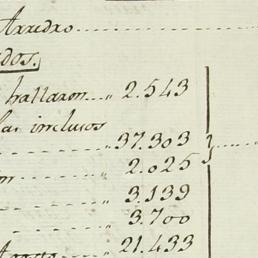 Arredro
dos.
hallaron... 2.543
las inclusos
37.303
on 2.025
3.139
3.700
Agosto 21.433